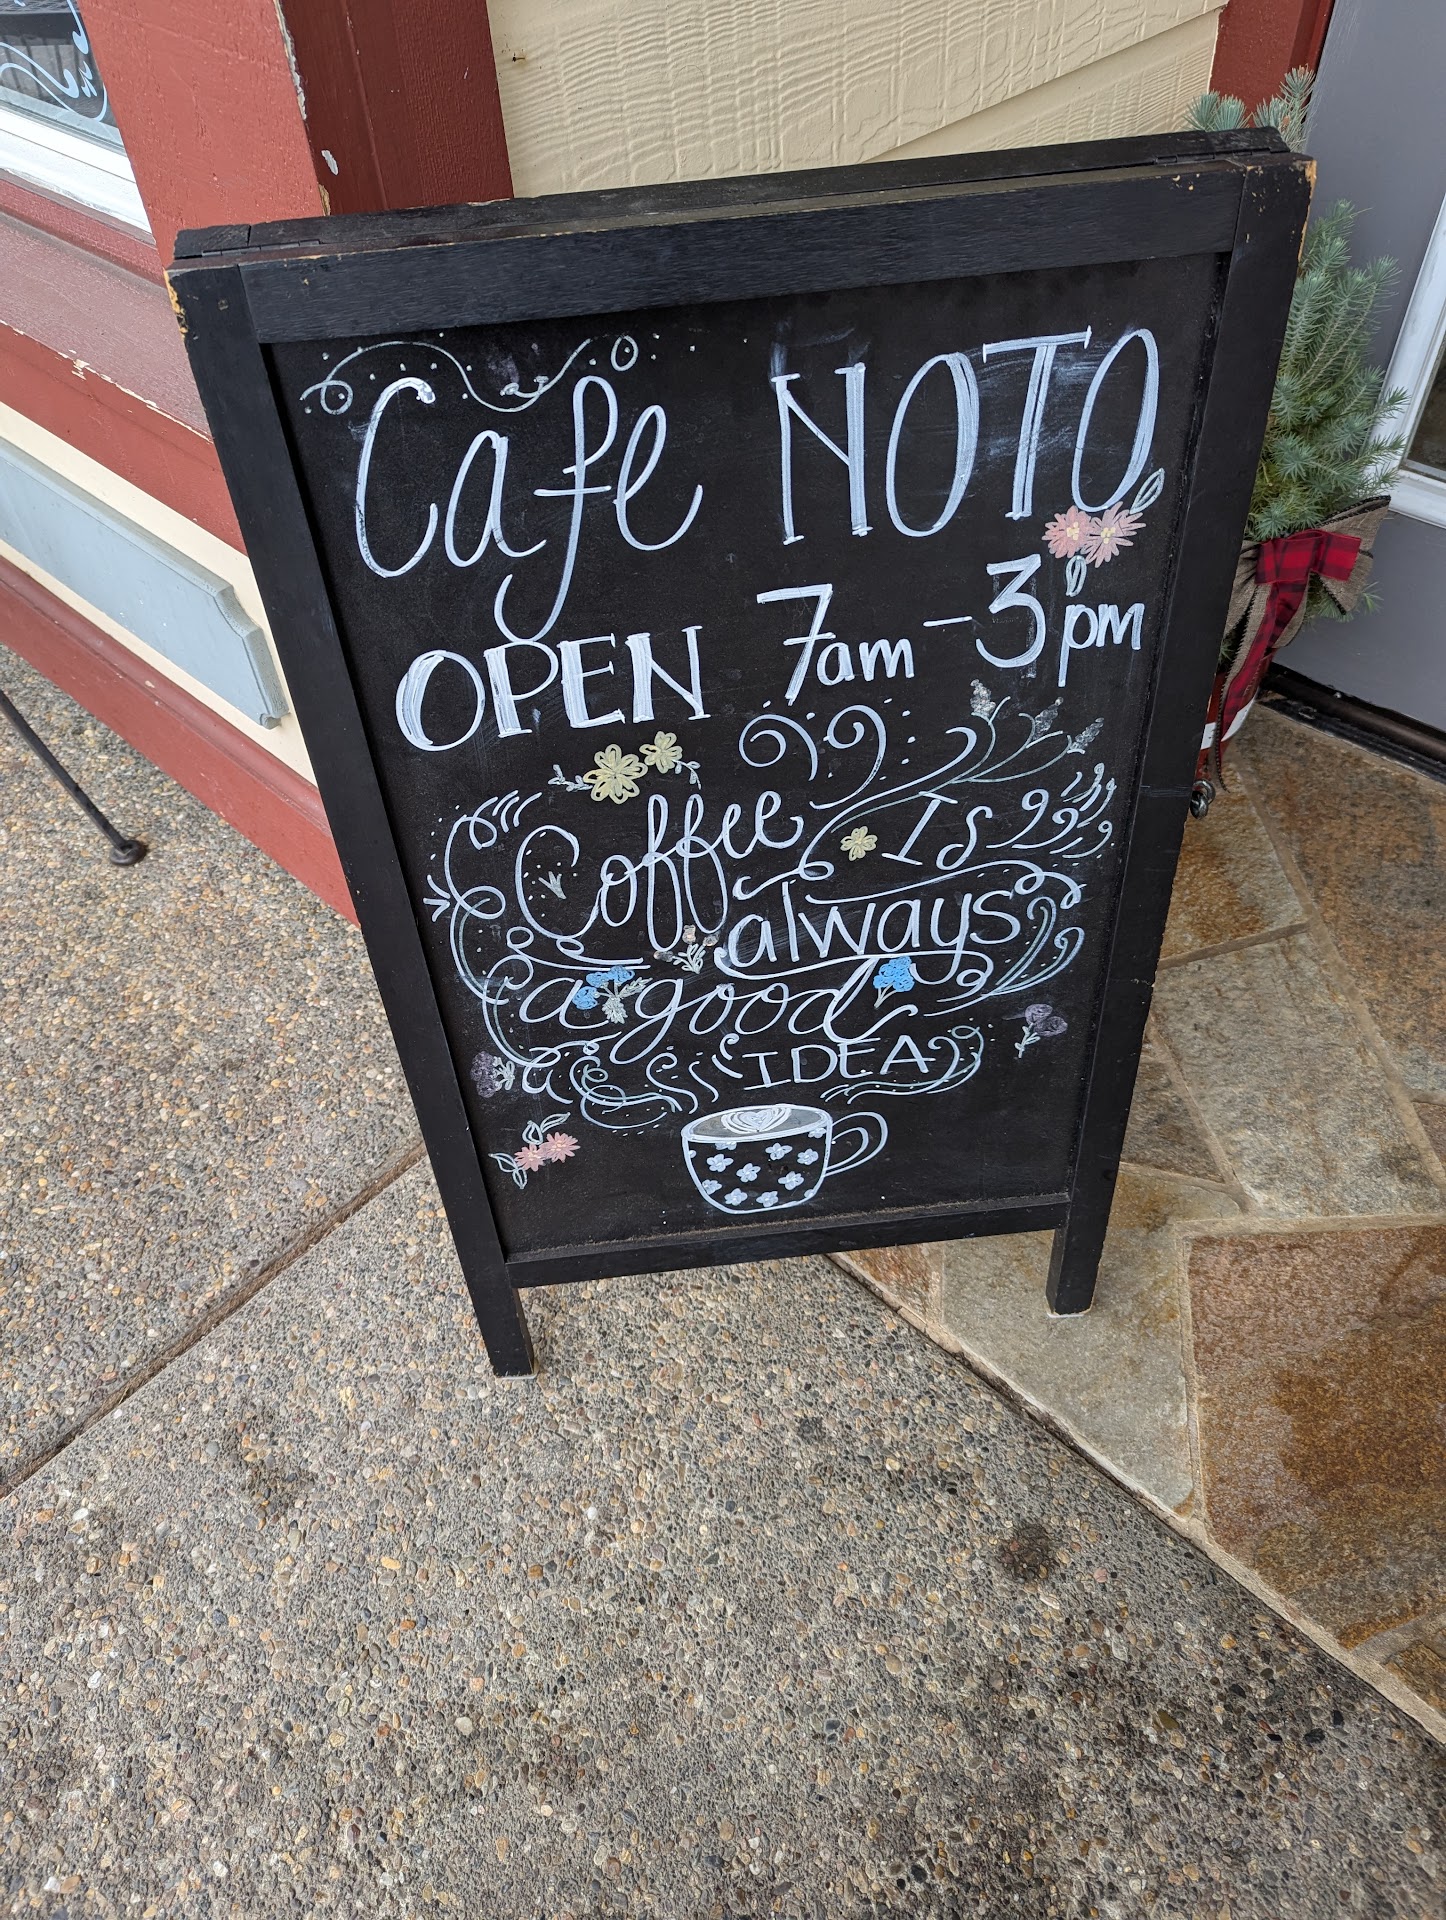 Cafe NOTO
OPEN 7am-3pm
Coffee Is
always
a good
IDEA